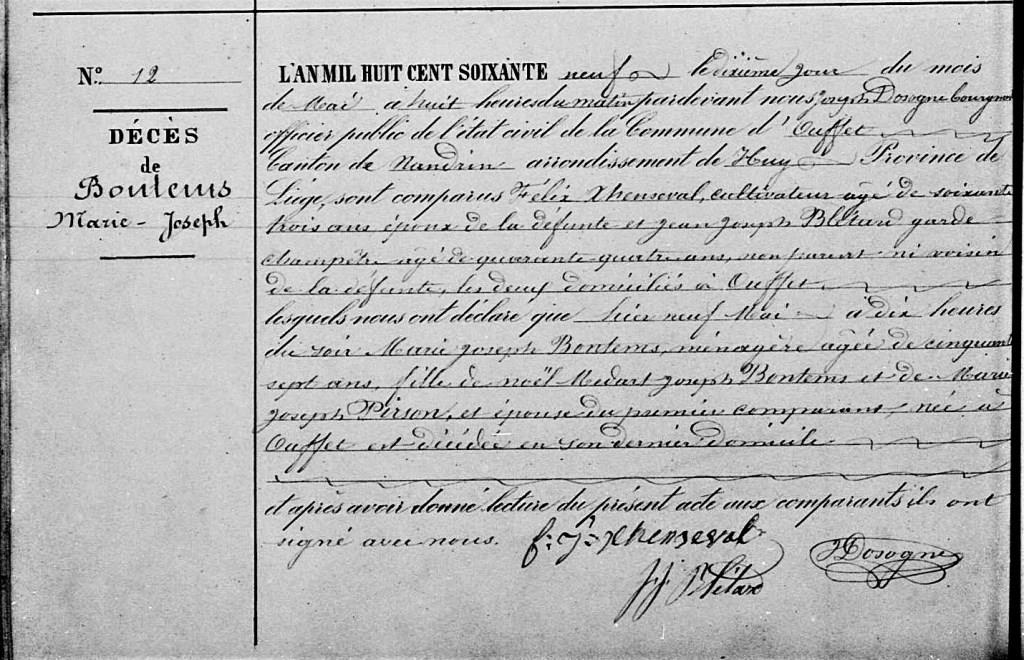 N° 12
DÉCÈS
de
Bontems
Marie-Joseph
L'AN MIL HUIT CENT SOIXANTE neuf le dixième jour du mois
de Mai à huit heures du matin pardevant nous Joseph Dosogne bourgmestre
officier public de l'état civil de la Commune d'Ouffet
Canton de Nandrin arrondissement de Huy Province de
Liége, sont comparus Félix Xhenseval, cultivateur agé de soixante
trois ans époux de la défunte et Jean Joseph Blétard garde
champêtre agé de quarante quatre ans, non parent ni voisin
de la défunte, les deux domiciliés à Ouffet
lesquels nous ont déclaré que hier neuf Mai à dix heures
du soir Marie Joseph Bontems, ménagère agée de cinquante
sept ans, fille de noël Medart Joseph Bontems et de Marie
Joseph Pirson, et épouse du premier comparant, née à
Ouffet est décédée en son dernier domicile
et après avoir donné lecture du présent acte aux comparants ils ont
signé avec nous. f: J: Xhenseval
JDosogne
J.J. Blétard